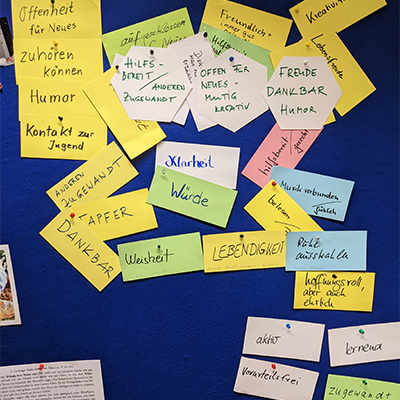 Offenheit
für Neues
Zuhören
können
Humor
Kontakt zur
Jugend
aufgeschlossen
Freundlich +
Kreativität
Lebensfreude
HILFS-
BEREIT /
ANDEREN
ZUGEWANDT
OFFEN FÜR
NEUES -
MUTIG
KREATIV
FREUDE
DANKBAR
HUMOR
hilfsbereit
gerecht
ANDEREN
ZUGEWANDT
Klarheit
Würde
Musikverbunden
fröhlich
belesen
TAPFER
DANKBAR
Weisheit
LEBENDIGKEIT
Ruhe
ausstrahlen
hoffnungsvoll,
aber auch
ehrlich
aktiv
lernend
Vorurteilsfrei
zugewandt